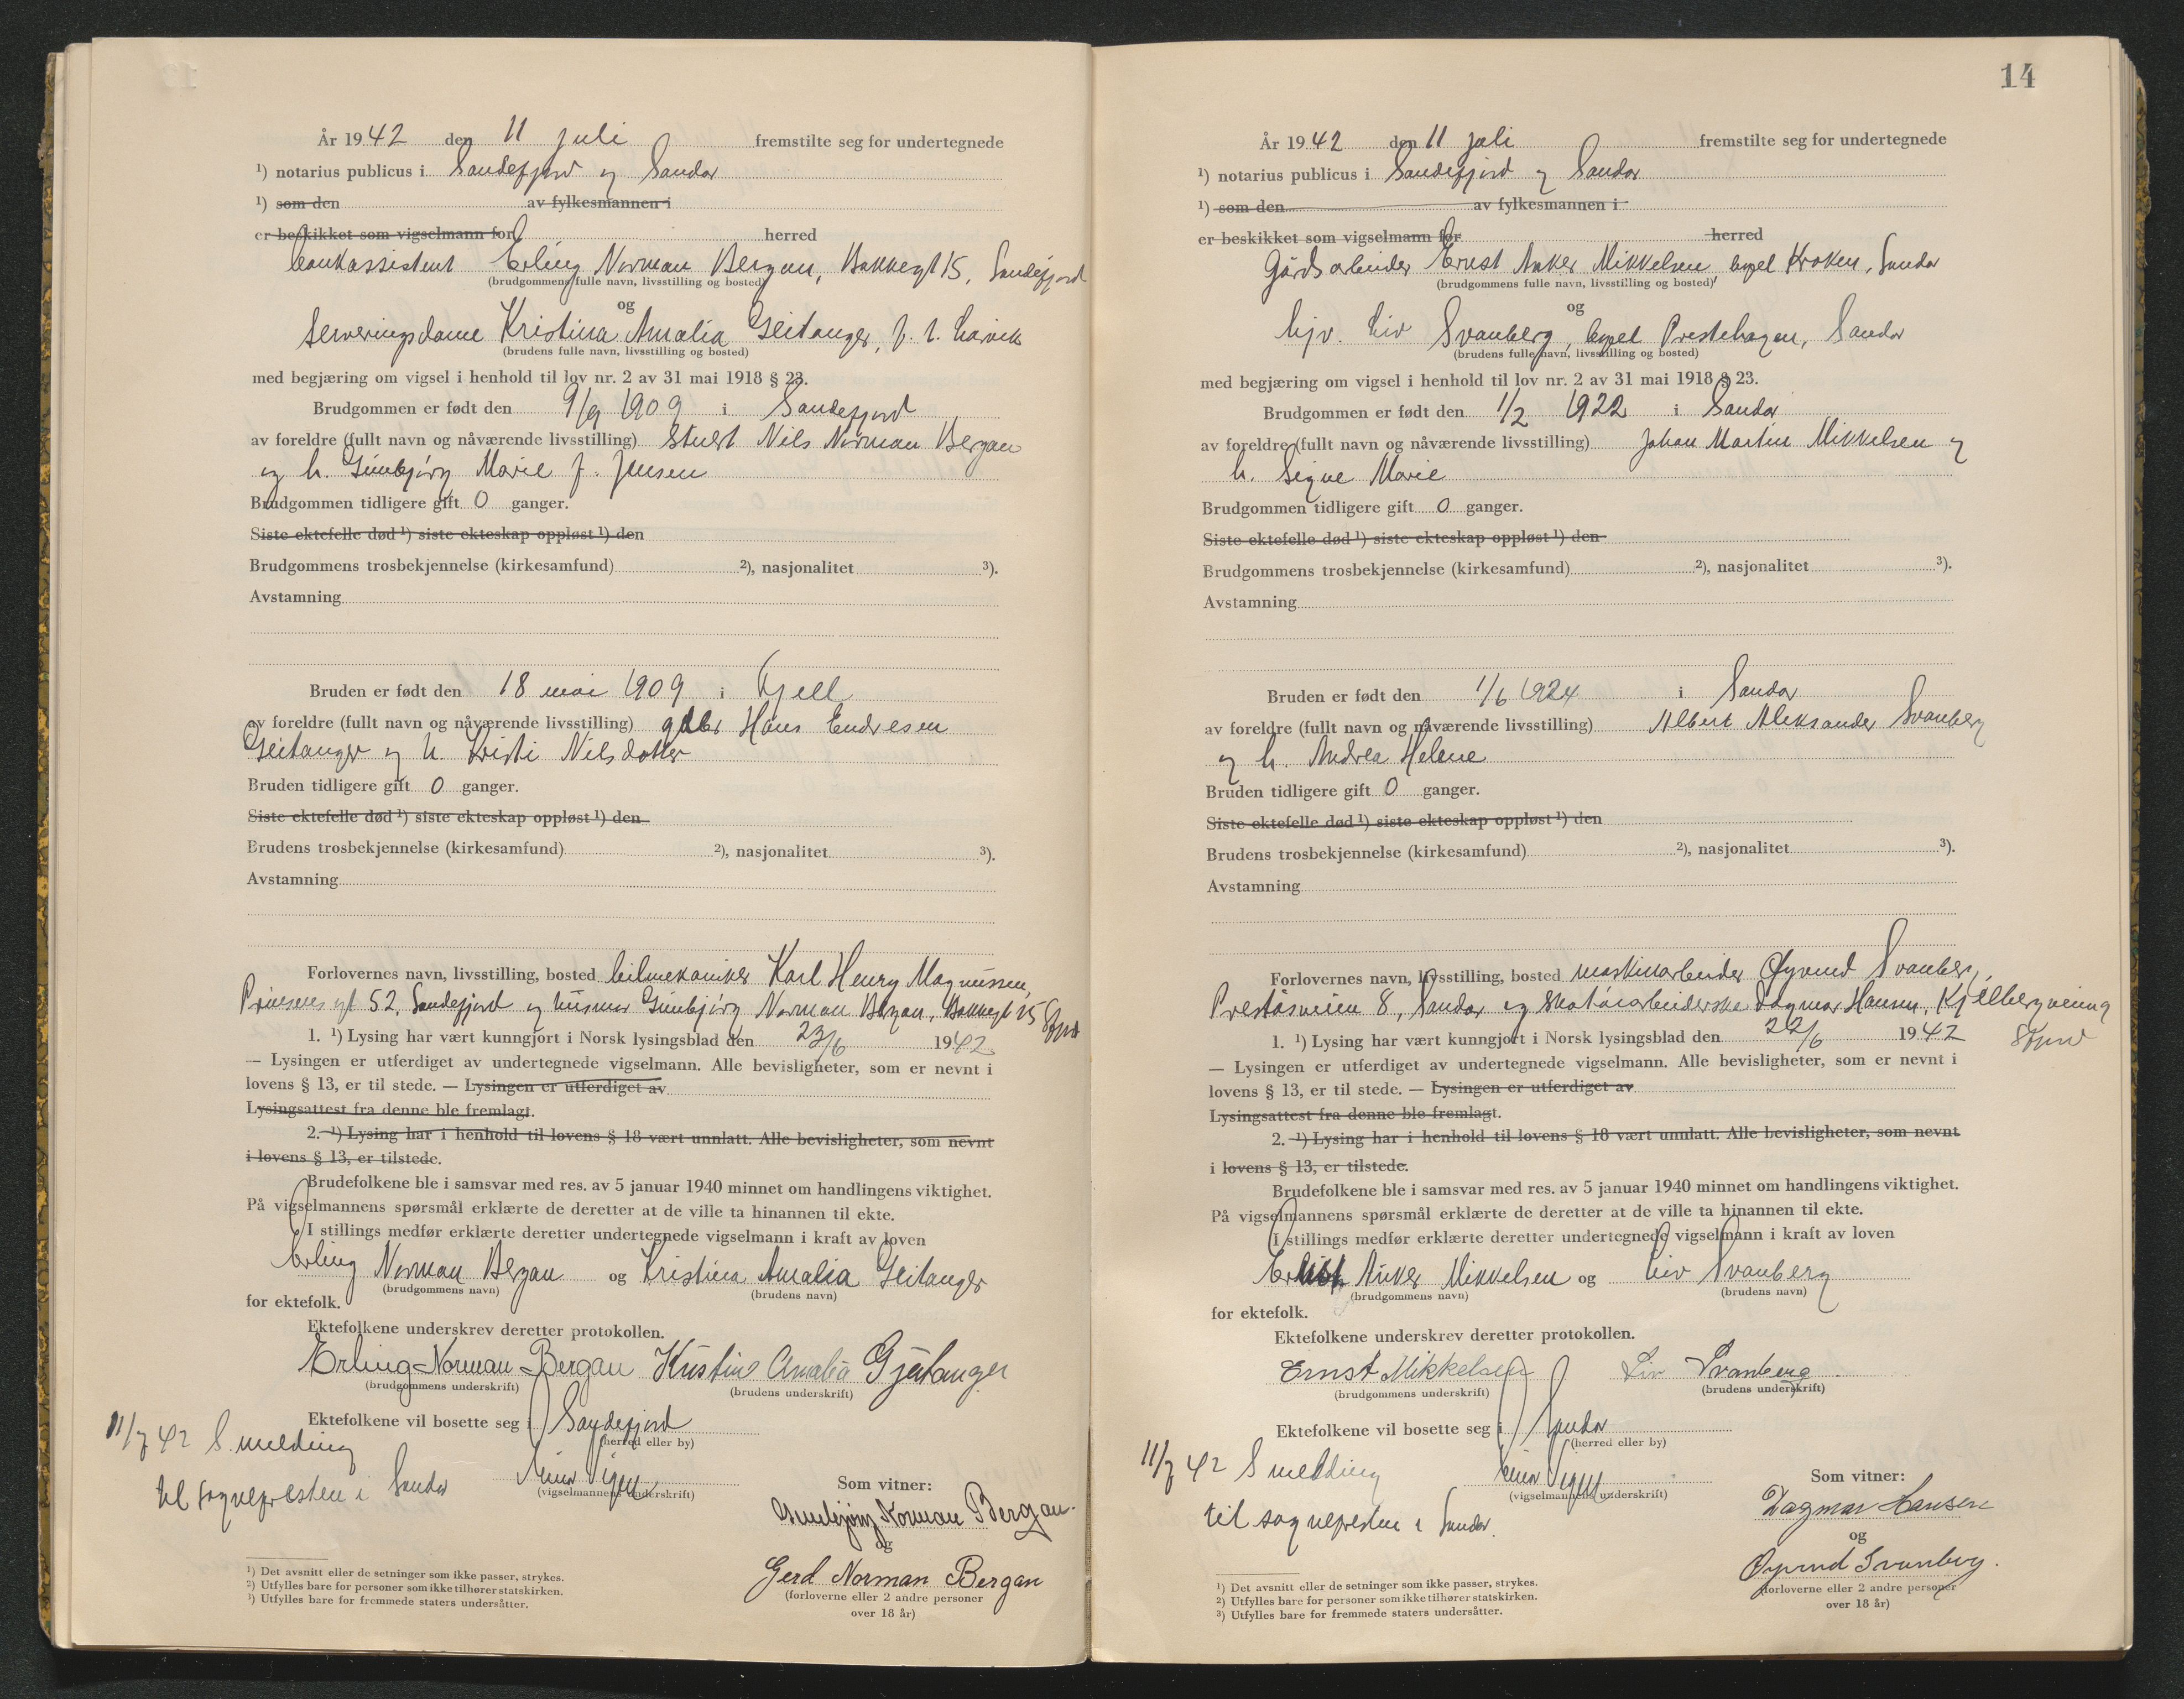 År 1942 den 11 juli fremstilte seg for undertegnede
¹) notarius publicus i Sandefjord og Sandar
¹) som den av fylkesmannen i
er beskikket som vigselmann for herred
bankassistent Erling Norman Bergan, Bakkegt 15, Sandefjord
(brudgommens fulle navn, livsstilling og bosted)
og
Serveringsdame Kristina Amalia Geitanger, f. t. Larvik
(brudens fulle navn, livsstilling og bosted)
med begjæring om vigsel i henhold til lov nr. 2 av 31 mai 1918 § 23.
Brudgommen er født den 9/9 1909 i Sandefjord
av foreldre (fullt navn og nåværende livsstilling) Stuert Nils Norman Bergan
og h. Gunbjørg Marie f. Jensen
Brudgommen tidligere gift 0 ganger.
Siste ektefelle død ¹) siste ekteskap oppløst ¹) den
Brudgommens trosbekjennelse (kirkesamfund) ²), nasjonalitet ³).
Avstamning
Bruden er født den 18 mai 1909 i Fjell
av foreldre (fullt navn og nåværende livsstilling) gdbr Hans Endresen
Geitanger og h. Kristi Nilsdotter
Bruden tidligere gift 0 ganger.
Siste ektefelle død ¹) siste ekteskap oppløst ¹) den
Brudens trosbekjennelse (kirkesamfund) ²), nasjonalitet ³).
Avstamning
Forlovernes navn, livsstilling, bosted bilmekaniker Karl Henry Magnussen,
Prinsens gt 52, Sandefjord og husmor Gunbjørg Norman Bergan, Bakkegt 15 Sfjord
1. ¹) Lysing har vært kunngjort i Norsk lysingsblad den 23/6 1942
— Lysingen er utferdiget av undertegnede vigselmann. Alle bevisligheter, som er nevnt i
lovens § 13, er til stede. — Lysingen er utferdiget av
Lysingsattest fra denne ble fremlagt.
2. ¹) Lysing har i henhold til lovens § 18 vært unnlatt. Alle bevisligheter, som nevnt
i lovens § 13, er tilstede.
Brudefolkene ble i samsvar med res. av 5 januar 1940 minnet om handlingens viktighet.
På vigselmannens spørsmål erklærte de deretter at de ville ta hinannen til ekte.
I stillings medfør erklærte deretter undertegnede vigselmann i kraft av loven
Erling Norman Bergan og Kristina Amalia Geitanger
(brudgommens navn) (brudens navn)
for ektefolk.
Ektefolkene underskrev deretter protokollen.
Erling Norman Bergan Kristine Amalia Gjeitanger
(brudgommens underskrift) (brudens underskrift)
Ektefolkene vil bosette seg i Sandefjord
(herred eller by)
11/7 42 S. melding
til sognepresten i Sandar
(vigselmannens underskrift)
Som vitner:
Gunbjørg Norman Bergan.
og
Gerd Norman Bergan
(forloverne eller 2 andre personer
over 18 år)
¹) Det avsnitt eller de setninger som ikke passer, strykes.
²) Utfylles bare for personer som ikke tilhører statskirken.
³) Utfylles bare for fremmede staters undersåtter.
14
År 1942 den 11 juli fremstilte seg for undertegnede
¹) notarius publicus i Sandefjord og Sandar
¹) som den av fylkesmannen i
er beskikket som vigselmann for herred
Gårdsarbeider Ernst Anker Mikkelsen, bopel Kroken, Sandar
(brudgommens fulle navn, livsstilling og bosted)
og
hjv. Liv Svanberg, bopel Prestehagen, Sandar
(brudens fulle navn, livsstilling og bosted)
med begjæring om vigsel i henhold til lov nr. 2 av 31 mai 1918 § 23.
Brudgommen er født den 1/2 1922 i Sandar
av foreldre (fullt navn og nåværende livsstilling) Johan Martin Mikkelsen og
h. Signe Marie
Brudgommen tidligere gift 0 ganger.
Siste ektefelle død ¹) siste ekteskap oppløst ¹) den
Brudgommens trosbekjennelse (kirkesamfund) ²), nasjonalitet ³).
Avstamning
Bruden er født den 1/6 1924 i Sandar
av foreldre (fullt navn og nåværende livsstilling) Albert Aleksander Svanberg
og h. Andrea Helene
Bruden tidligere gift 0 ganger.
Siste ektefelle død ¹) siste ekteskap oppløst ¹) den
Brudens trosbekjennelse (kirkesamfund) ²), nasjonalitet ³).
Avstamning
Forlovernes navn, livsstilling, bosted maskinarbeider Øyvind Svanberg,
Preståsveien 8, Sandar og skotøiarbeiderske Dagmar Hansen, Kjelbergveien
Sfjord
1. ¹) Lysing har vært kunngjort i Norsk lysingsblad den 22/6 1942
— Lysingen er utferdiget av undertegnede vigselmann. Alle bevisligheter, som er nevnt i
lovens § 13, er til stede. — Lysingen er utferdiget av
Lysingsattest fra denne ble fremlagt.
2. ¹) Lysing har i henhold til lovens § 18 vært unnlatt. Alle bevisligheter, som nevnt
i lovens § 13, er tilstede.
Brudefolkene ble i samsvar med res. av 5 januar 1940 minnet om handlingens viktighet.
På vigselmannens spørsmål erklærte de deretter at de ville ta hinannen til ekte.
I stillings medfør erklærte deretter undertegnede vigselmann i kraft av loven
Ernst Anker Mikkelsen og Liv Svanberg
(brudgommens navn) (brudens navn)
for ektefolk.
Ektefolkene underskrev deretter protokollen.
Ernst Mikkelsen Liv Svanberg
(brudgommens underskrift) (brudens underskrift)
Ektefolkene vil bosette seg i Sandar
(herred eller by)
11/7 42 S melding
til sognepresten i Sandar.
(vigselmannens underskrift)
Som vitner:
Dagmar Hansen
og
Øyvind Svanberg.
(forloverne eller 2 andre personer
over 18 år)
¹) Det avsnitt eller de setninger som ikke passer, strykes.
²) Utfylles bare for personer som ikke tilhører statskirken.
³) Utfylles bare for fremmede staters undersåtter.